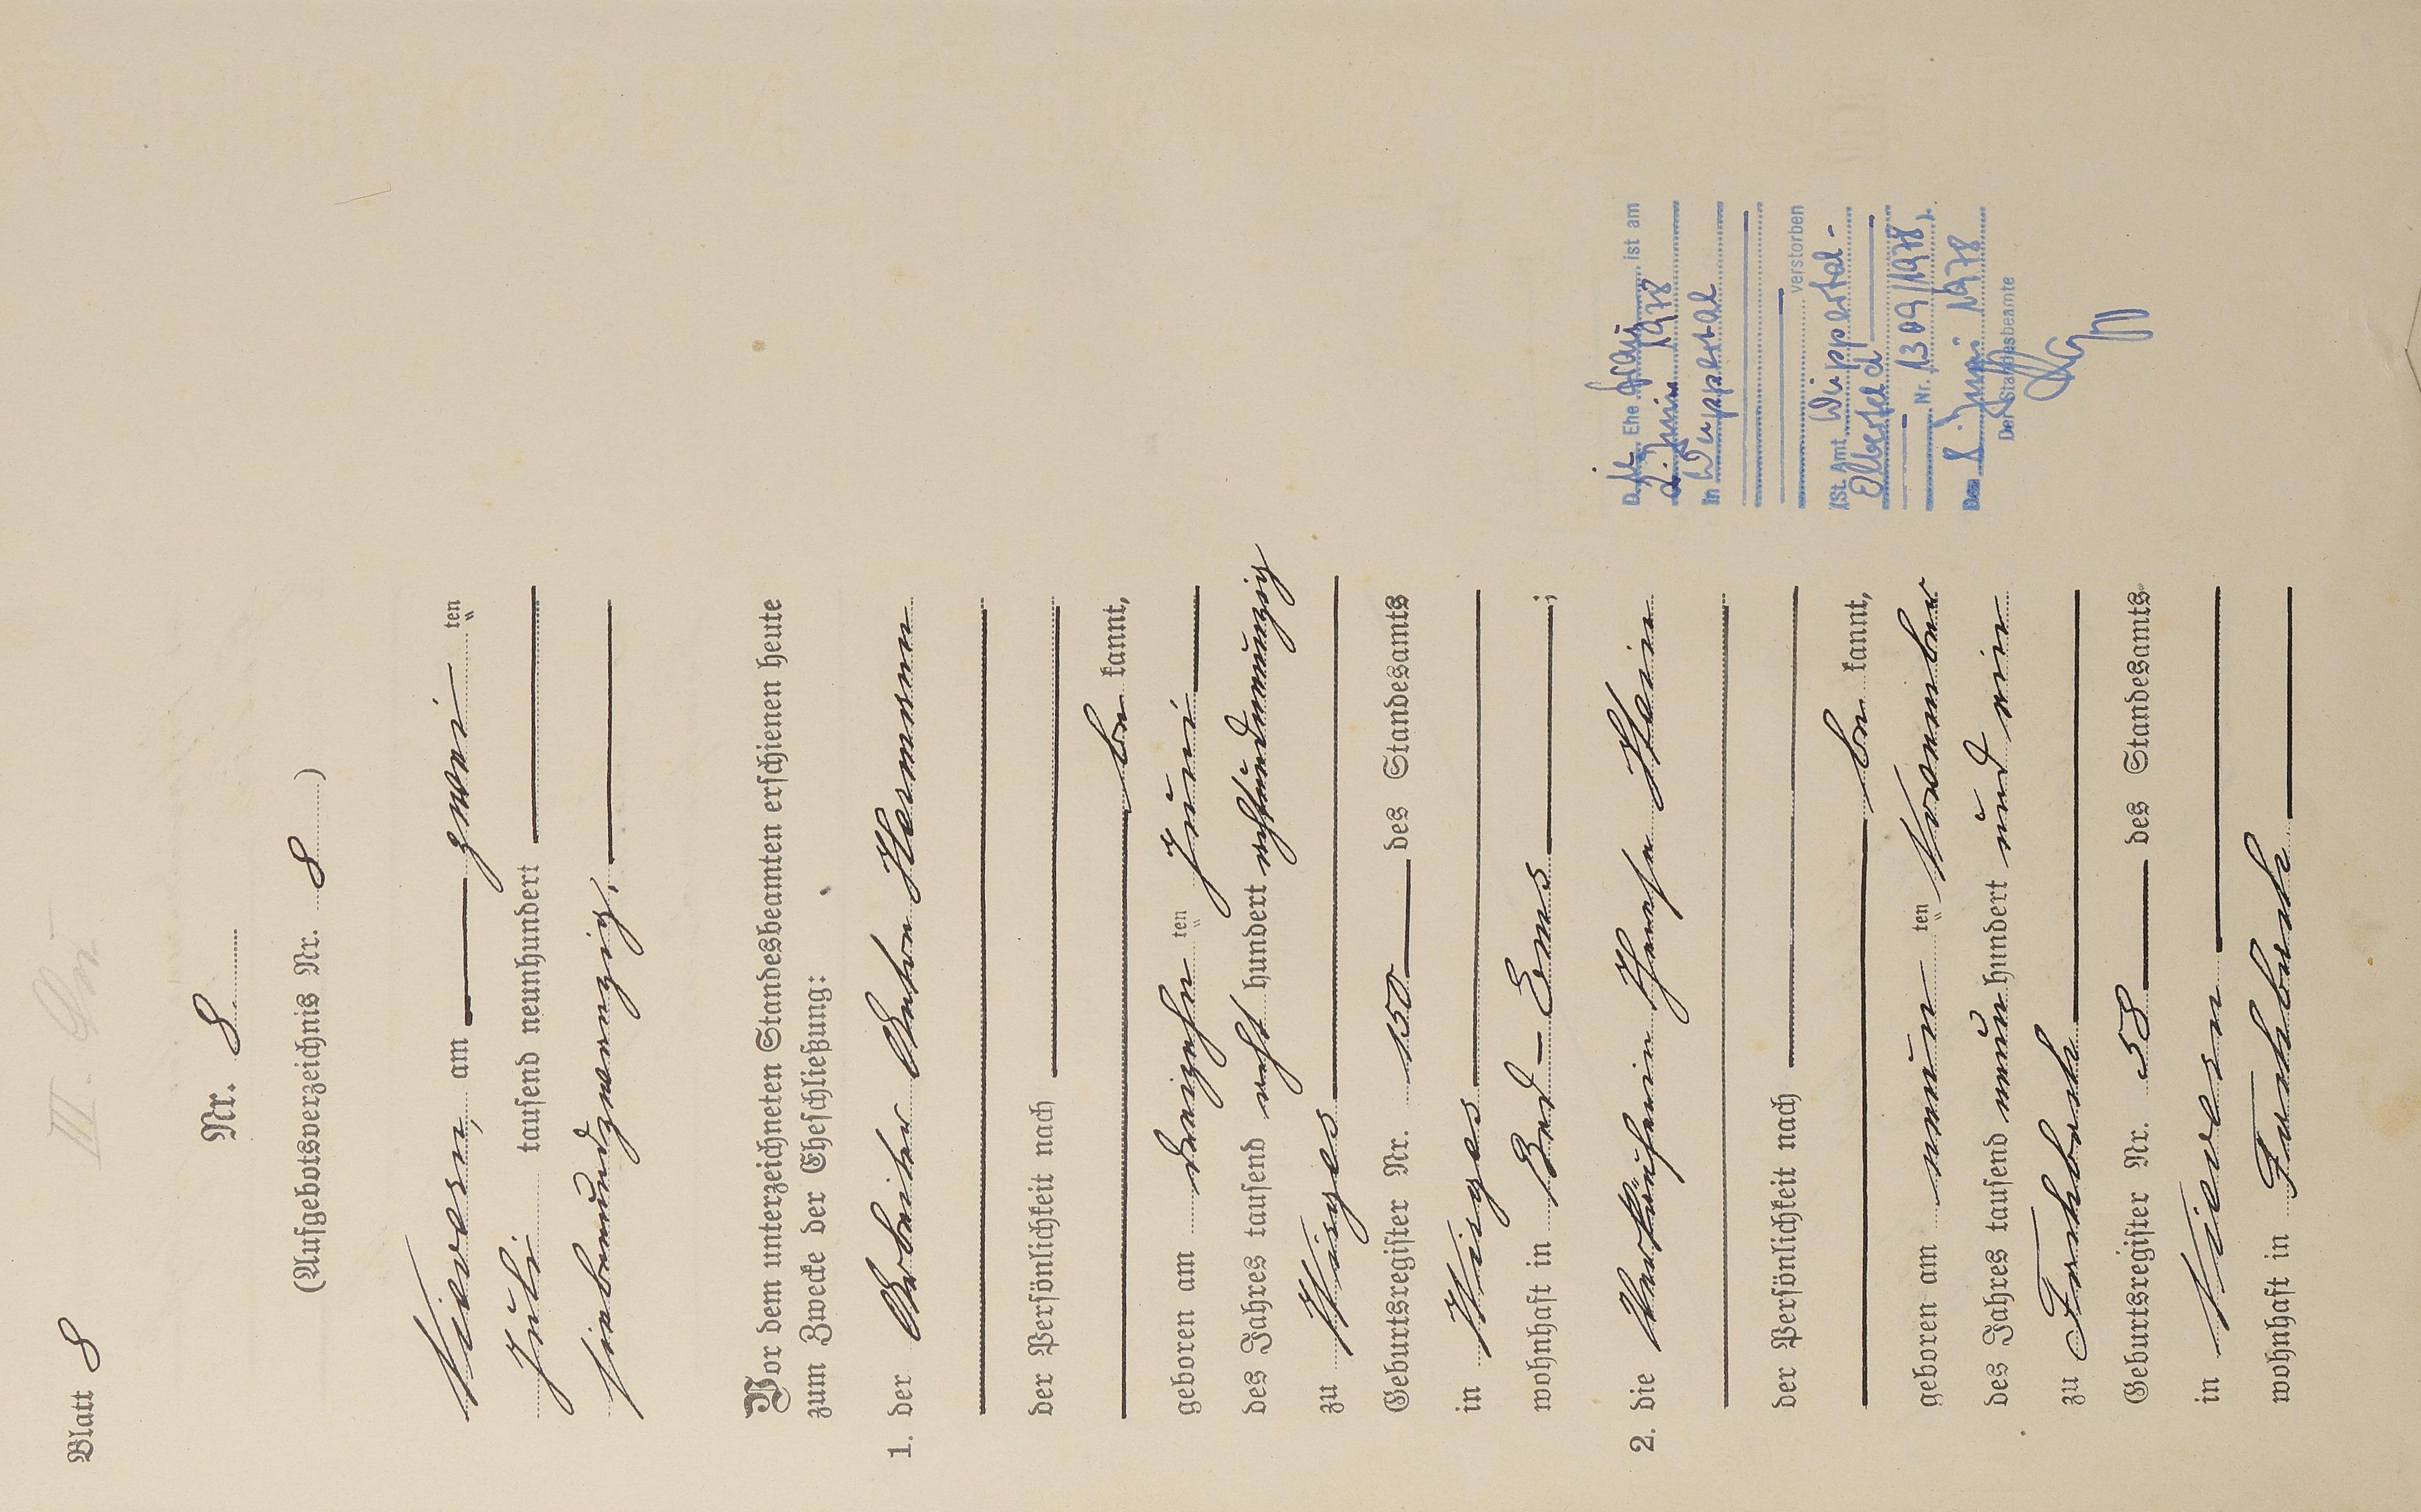 Blatt 8
Nr. 8.
(Aufgebotsverzeichnis Nr. 8)
Nievern, am zwei ten
Juli tausend neunhundert
siebenundzwanzig.
Vor dem unterzeichneten Standesbeamten erschienen heute
zum Zwecke der Eheschließung:
1. der Arbeiter Anton Hermann
der Persönlichkeit nach
be kannt,
geboren am dreizehn ten Juni
des Jahres tausend acht hundert achtundneunzig
zu Wirges
Geburtsregister Nr. 150 des Standesamts
in Wirges
wohnhaft in Bad-Ems ;
2. die Verkäuferin Therese Hein
der Persönlichkeit nach
be kannt,
geboren am neun ten November
des Jahres tausend neun hundert und ein
zu Fachbach
Geburtsregister Nr. 58 des Standesamts
in Nievern
wohnhaft in Fachbach
Ehe frau ist am
Juni 1978
in Wuppertal
verstorben
(St. Amt Wuppertal-
Elberfeld
Nr. 1309/1978).
Den 8. Juni 1978
Der Standesbeamte